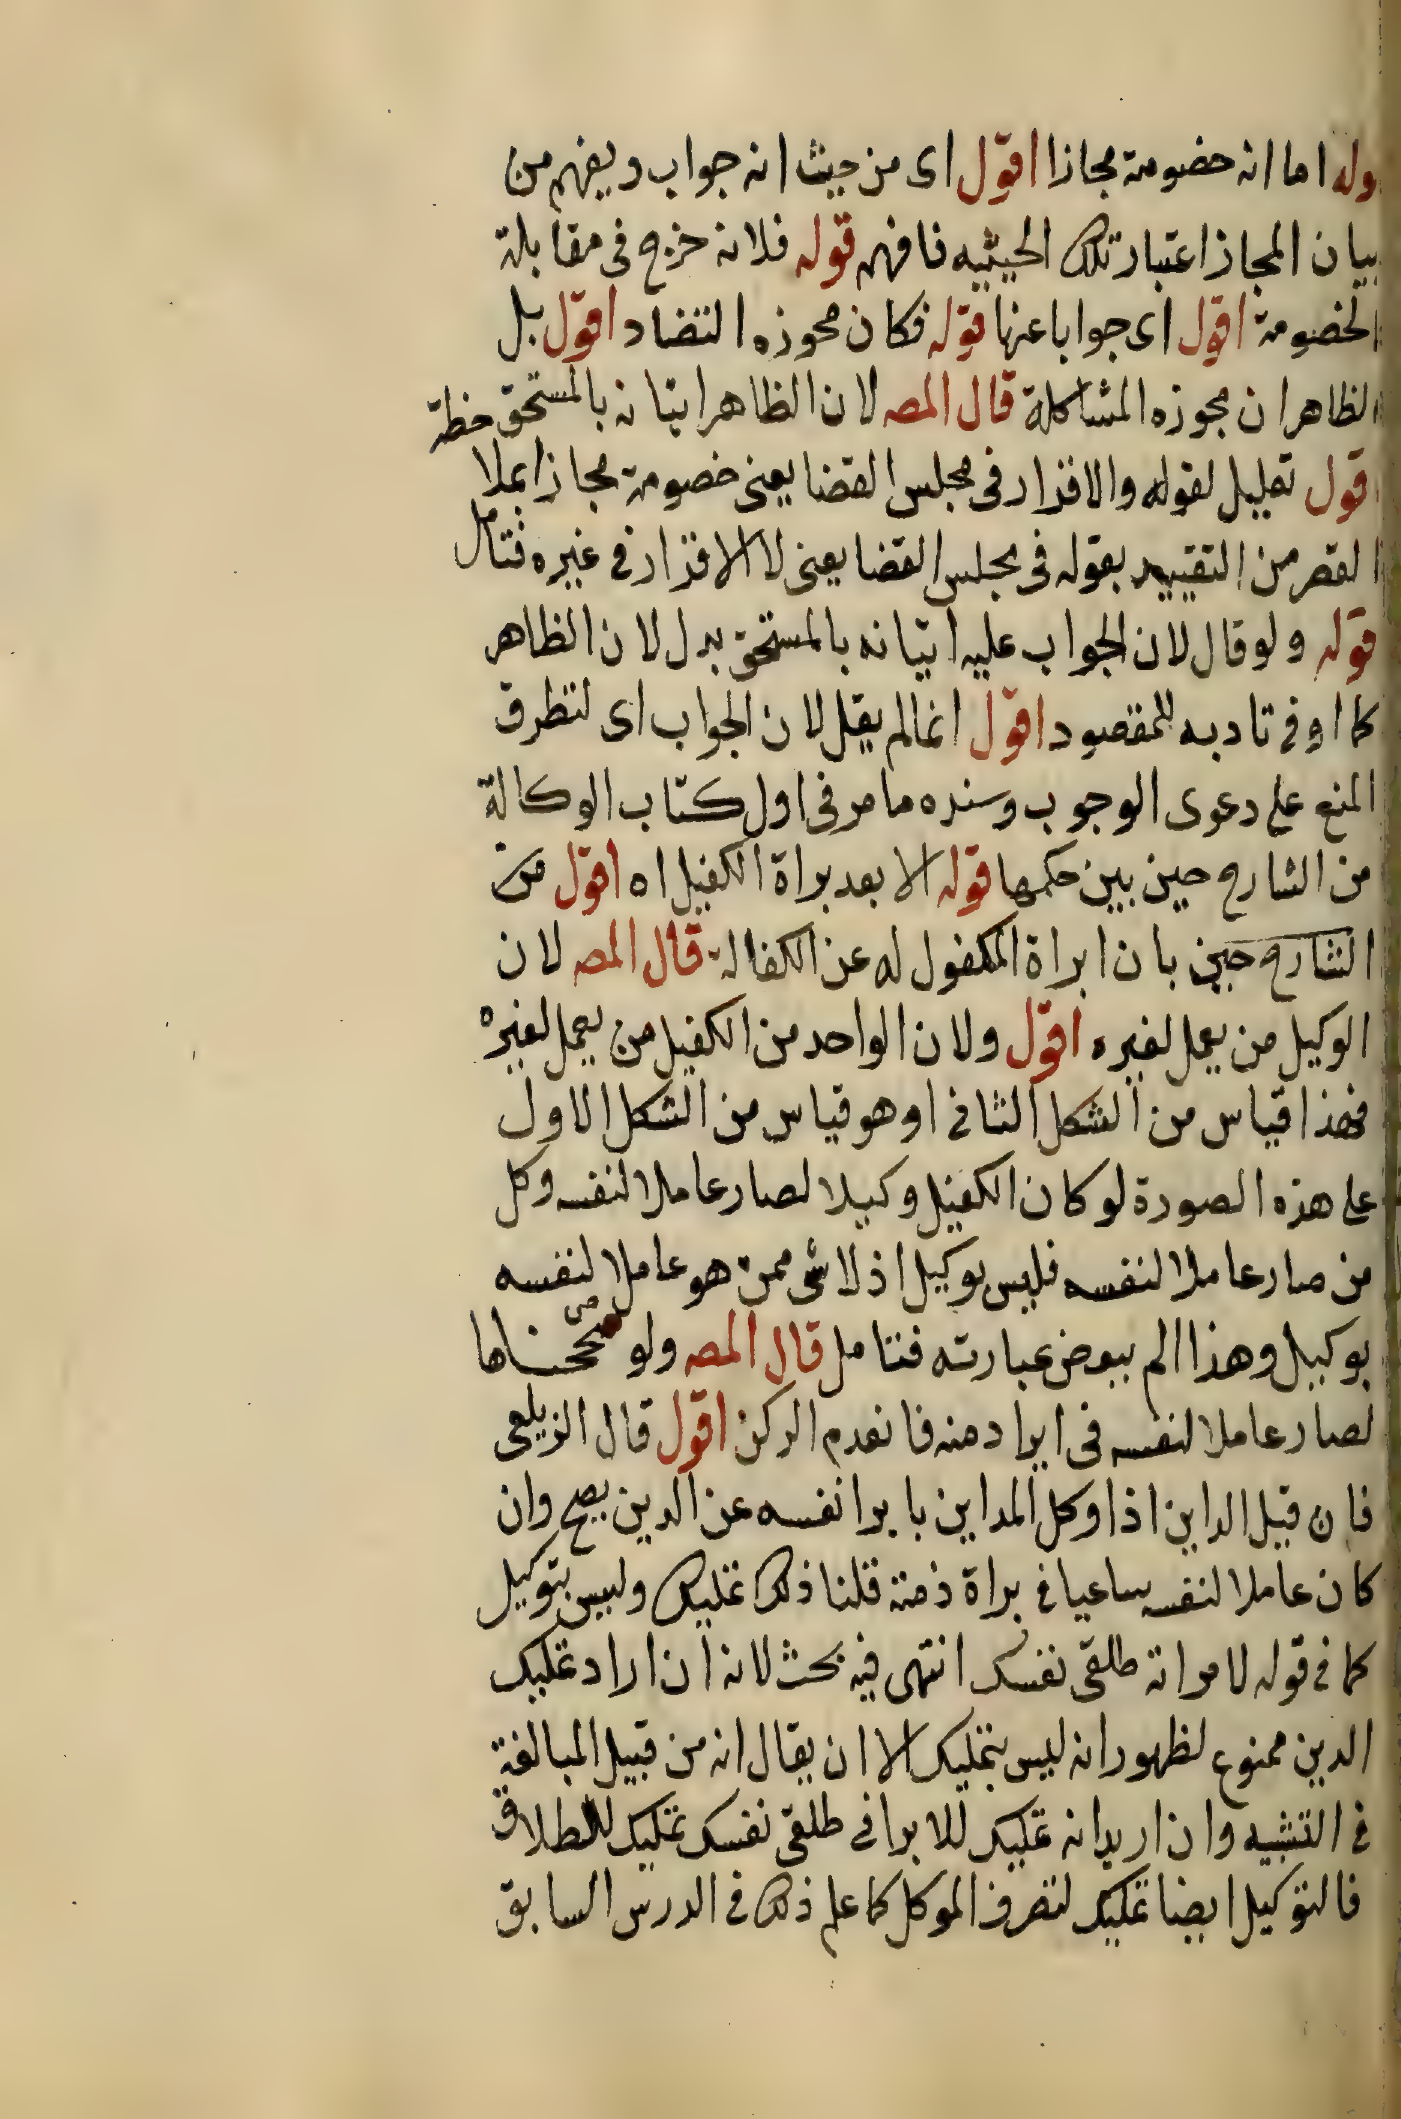 قوله اما انه خصومة مجازا اقول اى من حيث انه جواب ويفهم من
بيان المجاز اعتبار تلك الحيثيه فافهم قوله فلانه خرج فى مقابلة
الخصومة اقول اى جوابا عنها قوله فكان مجوزه التضاد اقول بل
الظاهر ان مجوزه المشاكلة قال المصه لان الظاهر اتيانه بالمستحق
اقول تعليل لقوله والاقرار فى مجلس القضا يعنى خصومة مجازا
القصر من التقييد بقوله فى مجلس القضا يعنى لا الاقرار فى غيره فتامل
قوله ولو قال لان الجواب عليه اتيانه بالمستحق بدل لان الظاهر
كما اوفى تاديه للمقصود اقول انما لم يقل لان الجواب اى لتطرق
المنع على دعوى الوجوب وسنده ما مر فى اول كتاب الوكالة
من الشارح حين بين حكمها قوله الا بعد براة الكفيل اه اقول من
الشارح حين بان ابراة المكفول له عن الكفالة قال المصه لان
الوكيل من يعمل لغيره اقول ولان الواحد من الكفيل من يعمل لغيره
فهذا قياس من الشكل الثانى او هو قياس من الشكل الاول
على هذه الصورة لو كان الكفيل وكيلا لصار عاملا لنفسه وكل
من صار عاملا لنفسه فليس بوكيل اذ لا شى ممن هو عاملا لنفسه
بوكيل وهذا الم ببعض عبارته فتامل قال المصه ولو صححناها
لصار عاملا لنفسه فى ابرا ذمته فانعدم الركن اقول قال الزيلعى
فان قيل الداين اذا وكل المداين بابرا نفسه عن الدين يصح وان
كان عاملا لنفسه ساعيا فى براة ذمته قلنا ذلك تمليك وليس بتوكيل
كما فى قوله لامراته طلقى نفسك انتهى فيه بحث لانه ان اراد تمليك
الدين ممنوع لظهور انه ليس بتمليك الا ان يقال انه من قبيل المبالغة
فى التشبيه وان اريد انه تمليك للابرا فى طلقى نفسك تمليك للطلاق
فالتوكيل ايضا تمليك لتصرف الموكل كما علم ذلك فى الدرس السابق